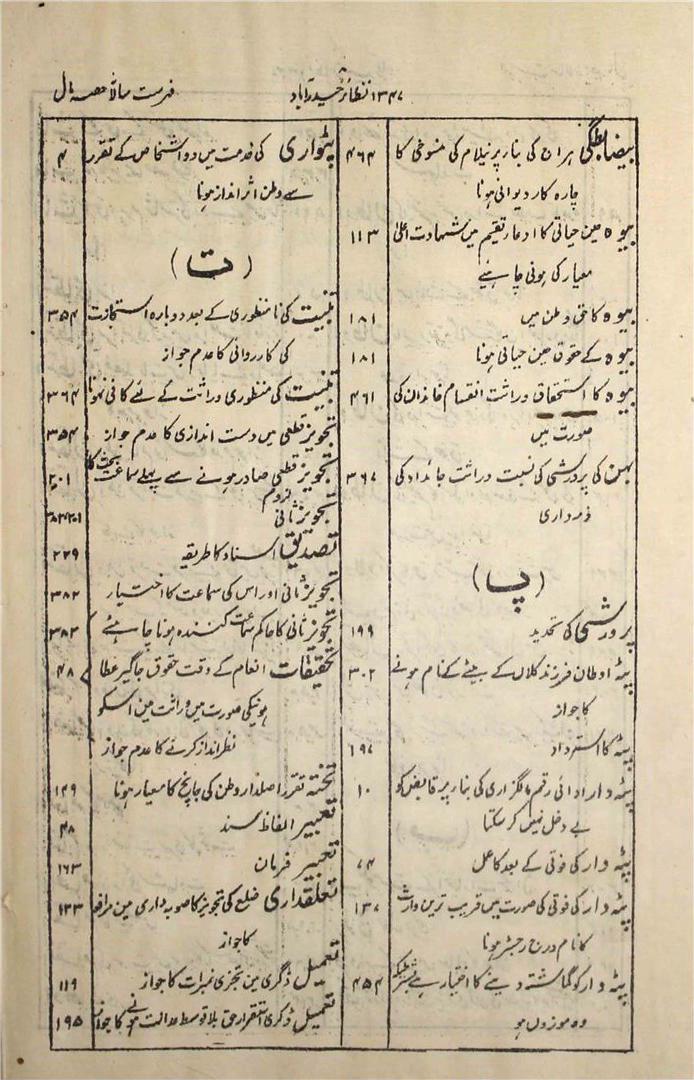 فہرست سالانہ حصہ مال
نظائر حیدرآباد
۱۳۴۷
بیضابطگی ہراج کی بنار پر نیلام کی منسوخی کا ۴۶۴
چارہ کار دیوانی ہونا
بیوہ حین حیاتی کا ادعا تقسیم میں شہادت اعلیٰ ۱۱۳
معیار کی ہونی چاہئیے
بیوہ کا حق وطن میں ۱۸۱
بیوہ کے حقوق حین حیاتی ہونا ۱۸۱
بیوہ کا استحقاق وراثت انقسام خاندان کی ۴۶۱
صورت میں
بہن کی پرورشی کی نسبت وراثت جائداد کی ۳۶۷
ذمہ داری
(پ)
پرورشی کی تحدید ۱۹۹
پٹہ اوطان فرزند کلاں کے بیٹے کے نام ہونے ۳۰۲
کا جواز
پٹہ کا استرداد ۱۹۷
پٹہ دار ادائی رقم مالگزاری کی بنار پر قابض کو ۱۰
بے دخل نہیں کر سکتا
پٹہ دار کی فوتی کے بعد کا عمل ۷۴
پٹہ دار کی فوتی کی صورت میں قریب ترین وارث ۱۳۷
کا نام درج رجسٹر ہونا
پٹہ دار کو گماشتہ دینے کا اختیار ہے بشرطیکہ ۴۵۴
وہ موزوں ہو
پٹواری کی خدمت میں دو اشخاص کے تقرر ۴
سے وطن اثر انداز ہونا
(ت)
تبنیت کی نامنظوری کے بعد دوبارہ استجازت ۳۵۴
کی کارروائی کا عدم جواز
تبنیت کی منظوری وراثت کے لئے کافی نہونا ۳۶۴
تجویز قطعی میں دست اندازی کا عدم جواز ۳۵۴
تجویز قطعی صادر ہونے سے پہلے سماعت بحث کا ۲۰۱
لزوم
تجویز ثانی
تصدیق اسناد کا طریقہ ۲۲۹
تجویز ثانی اور اس کی سماعت کا اختیار ۳۸۲
تجویز ثانی کا حاکم سماعت کنندہ ہونا چاہئیے ۳۸۲
تحقیقات انعام کے وقت حقوق جاگیر عطا ۴۸
ہونیکی صورت میں وراثت مین اسکو
نظر انداز کرنے کا عدم جواز
تختہ تقرر اصلدار وطن کی جانچ کا معیار ہونا ۱۴۹
تعبیر الفاظ سند ۴۸
تعبیر فرمان ۱۶۳
تعلقداری ضلع کی تجویز کا صوبہ داری مین مرافعہ ۱۳۳
کا جواز
تعمیل ڈگری مین تجزی نمبرات کا جواز ۱۱۹
تعمیل ڈگری استقرار حق بلا توسط عدالت ہونے کا جواز ۱۹۵